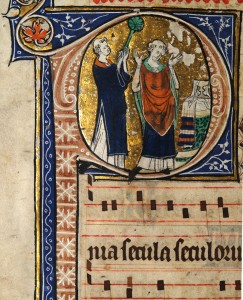 ma secula seculoru